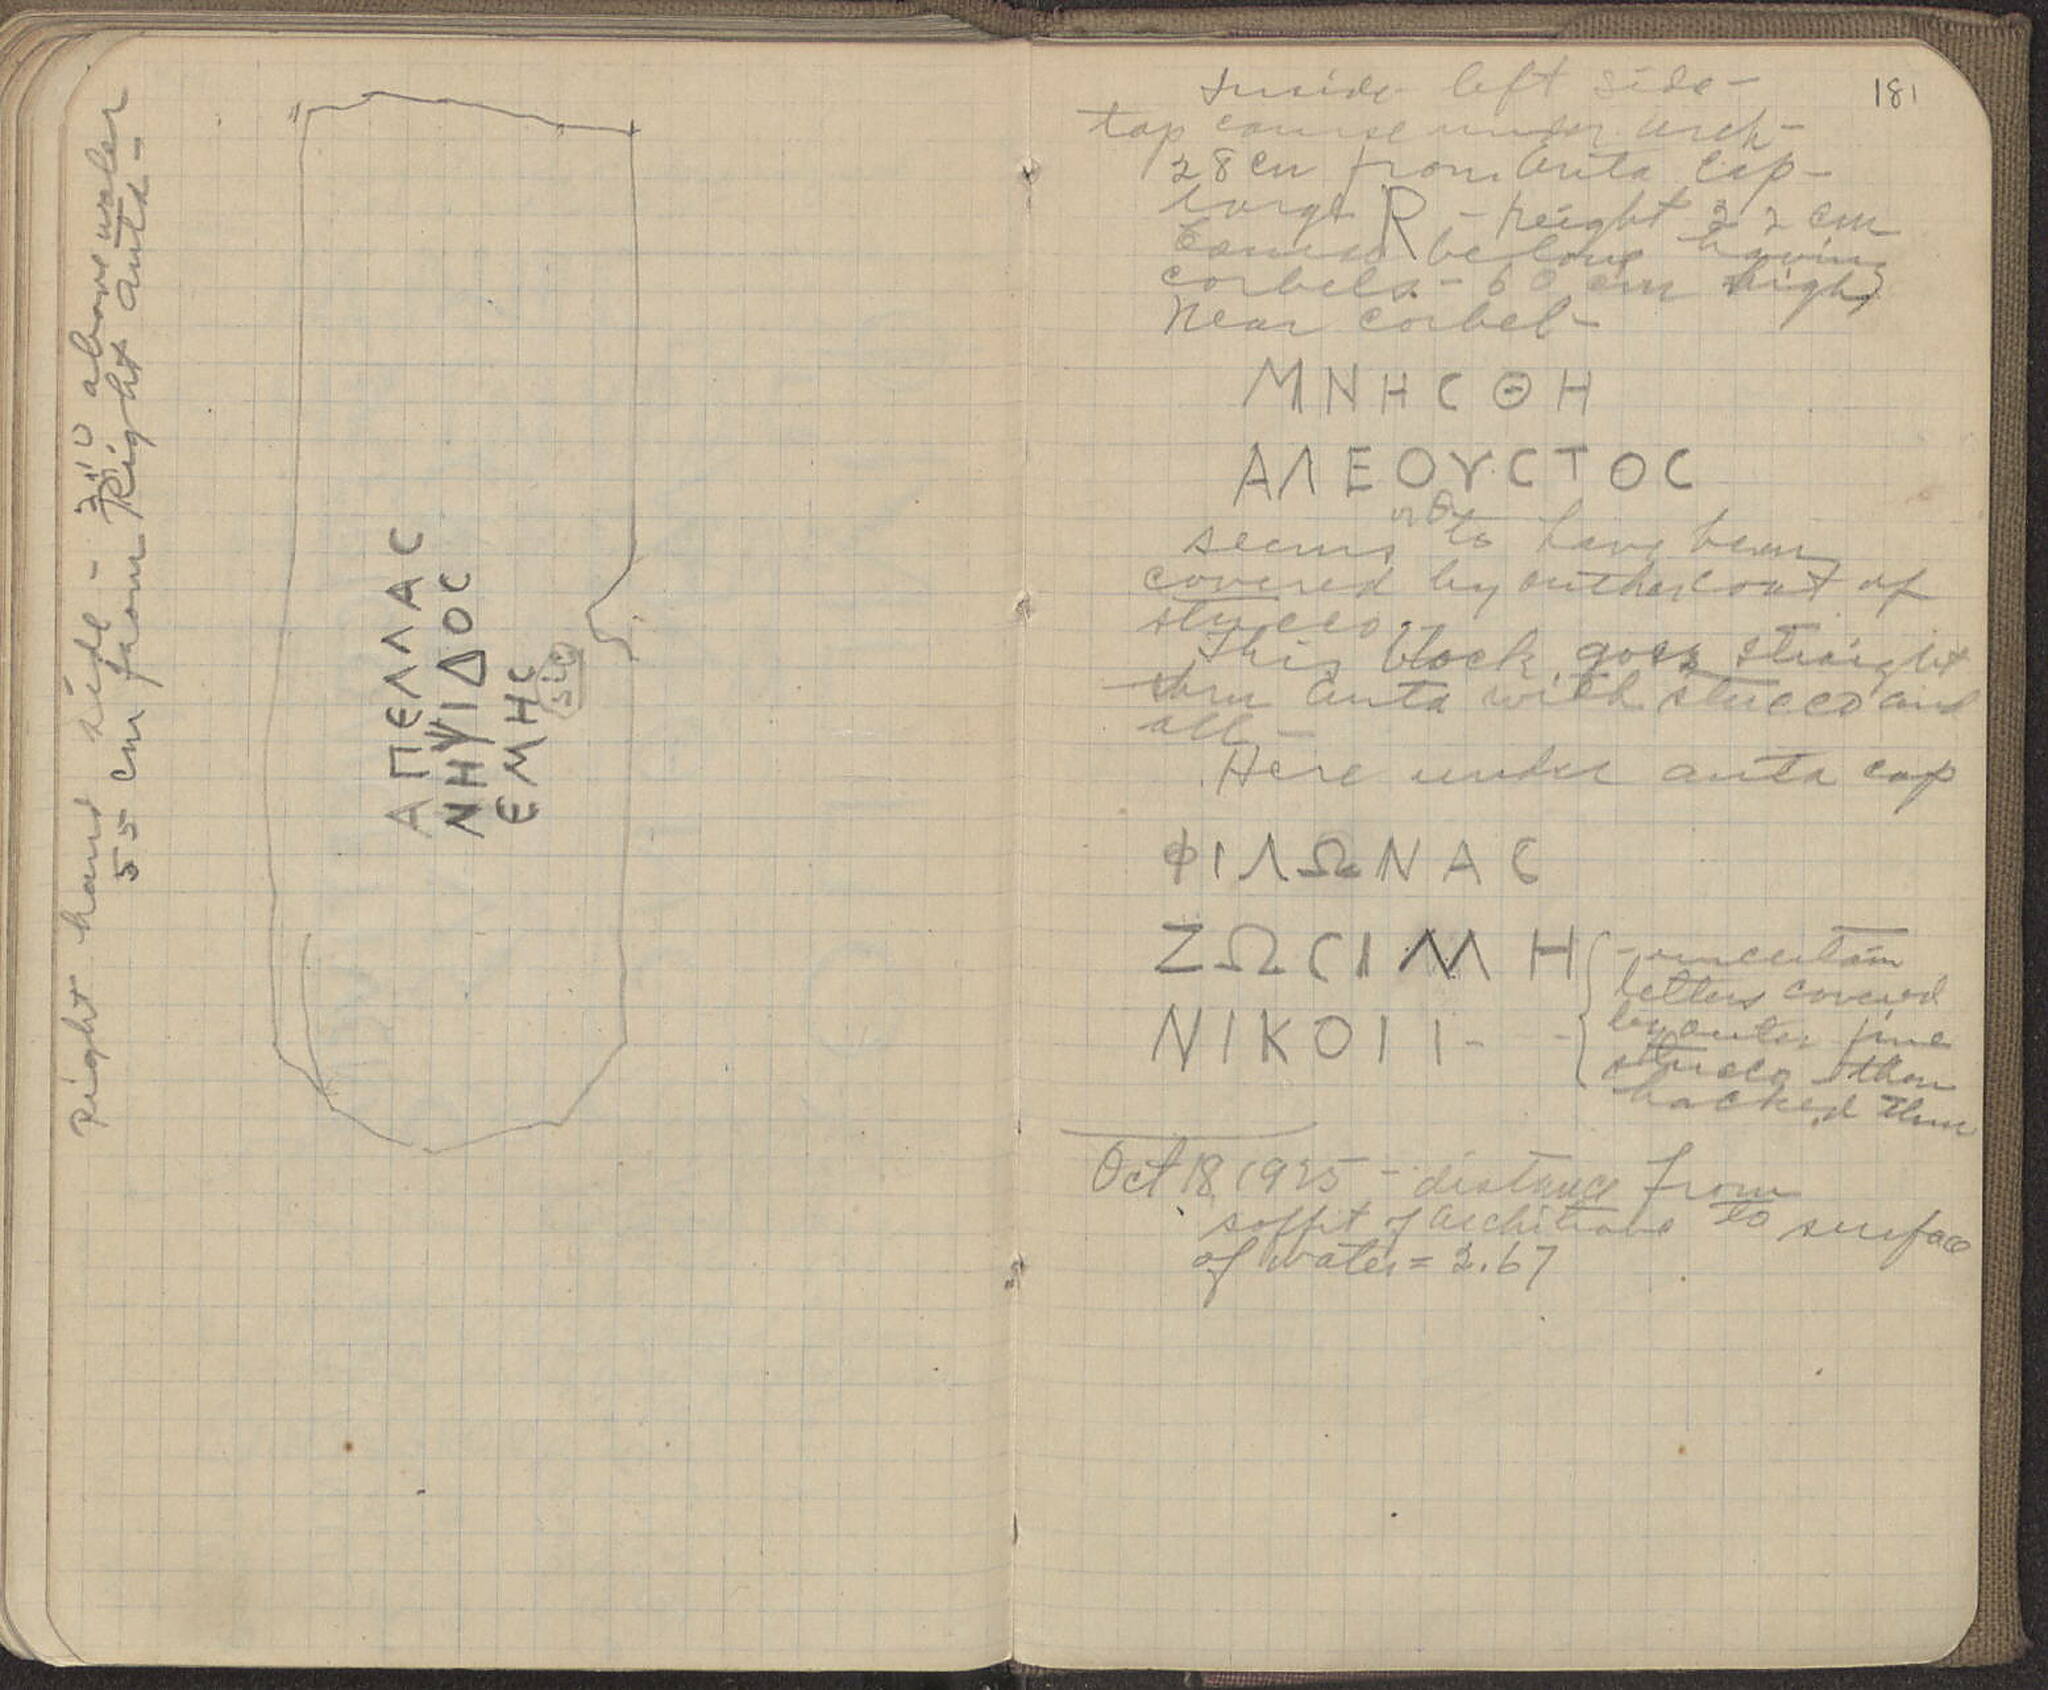 Right hand side – above water
55 cm from Right anta –
ΑΠΕΛΛΑС
ΝΗΨΙΔΟС
ΕΜΗС
sic
181
Inside left side –
top course under arch –
28 cm from anta cap –
large R – height 22 cm
Course below having
corbels – 60 cm high,
near corbel –
ΜΝΗСΘΗ
ΑΛΕΟΥСΤΟС
or Θ
seems to have been
covered by another coat of
stucco.
This block goes straight
thru anta with stucco and
all –
Here under anta cap
ΦΙΛΩΝΑС
ΖΩСΙΜΗ
ΝΙΚΟΙΙ - -
– uncertain
letters covered
by outer fine
stucco then
hacked thru
Oct 18 1925 – distance from
soffit of architrave to surface
of water = 2.67